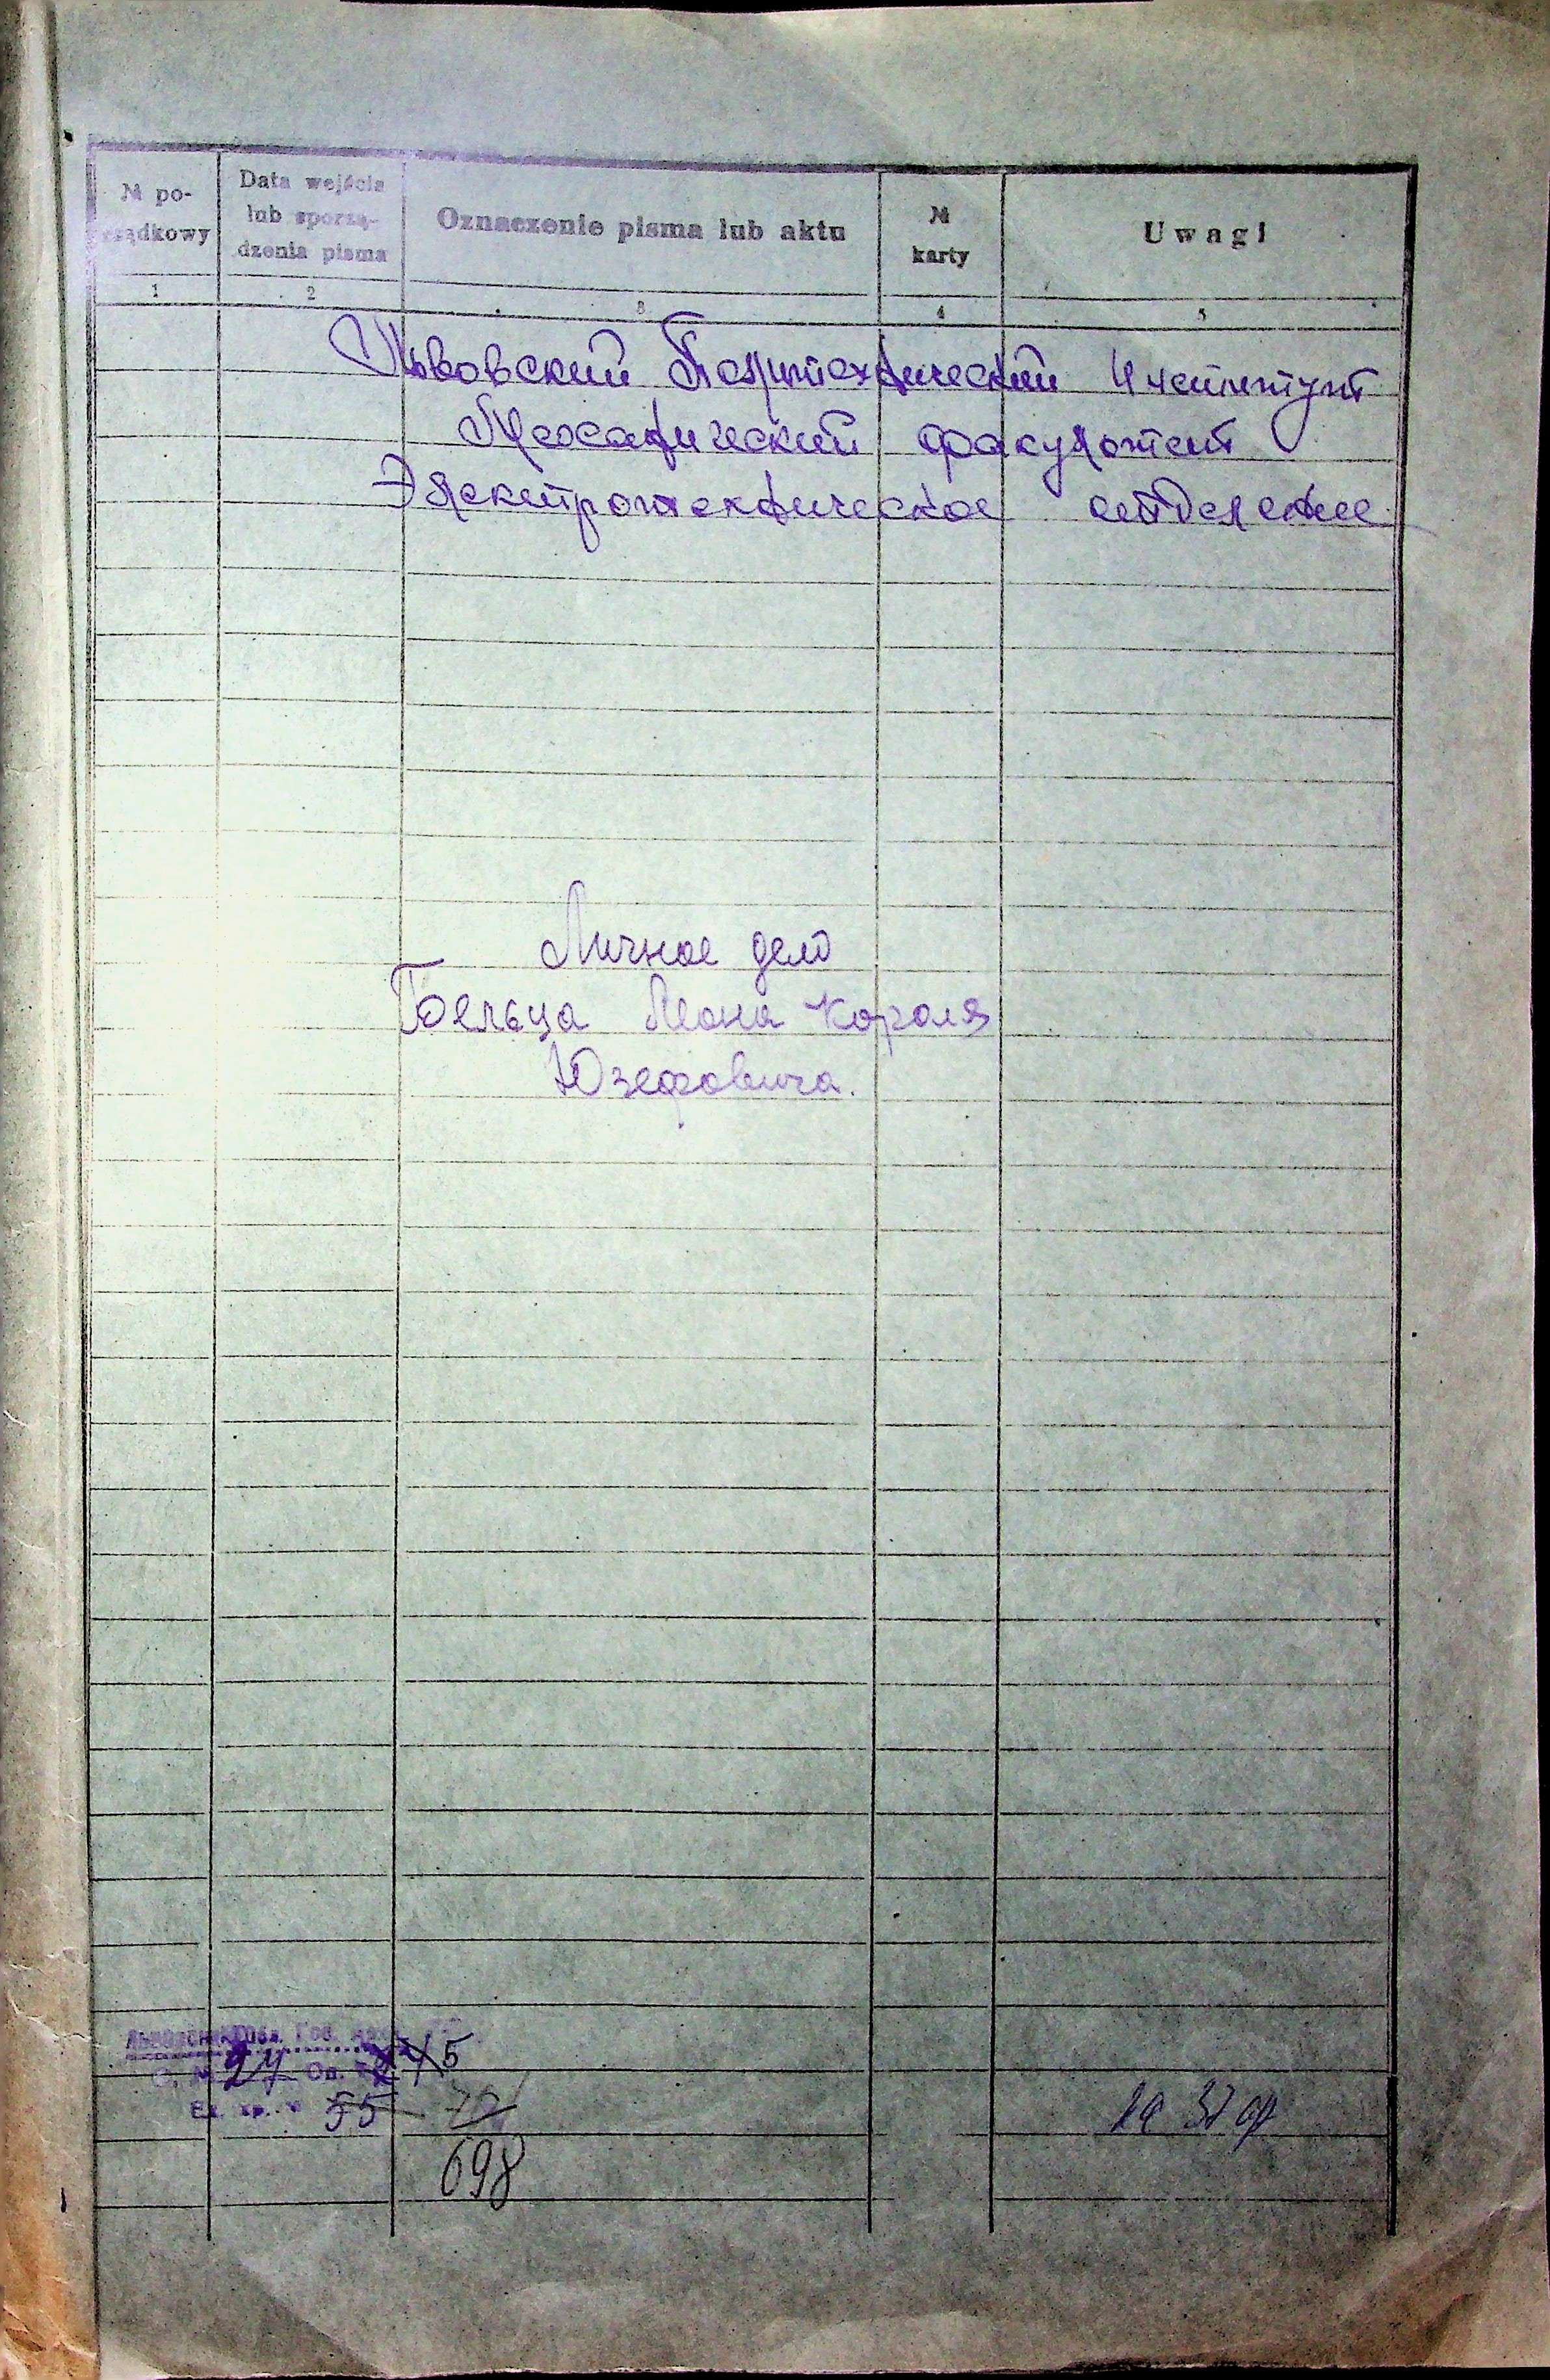 № po-
rządkowy
Data wejścia
lub sporzą-
dzenia pisma
Oznaczenie pisma lub aktu
№
karty
Uwagi
1 2 3 4 5
Львовский Политехнический Институт
Механический факультет
Электротехническое отделение
Личное дело
Гоельца Леона Кароля
Юзефовича.
Гос.
27 Оп. 5
Ед. хр. 55
698